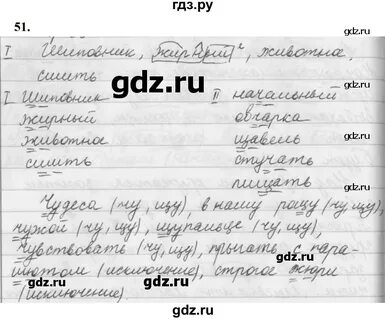 gdz.ru
гдз.ру
51.
gdz.ru gdz.ru
I Шиповник, жирный², животное,
сшить
I Шиповник II начальный
жирный овчарка
животное щавель
сшить стучать
пищать
gdz.ru gdz.ru
Чудеса (чу, щу), в нашу рощу (чу, щу),
чужой (чу, щу), щупальце (чу, щу),
Чувствовать (чу, щу), прыгать с пара-
шютом (исключение), строгое жюри
(исключение).
gdz.ru gdz.ru
gdz.ru